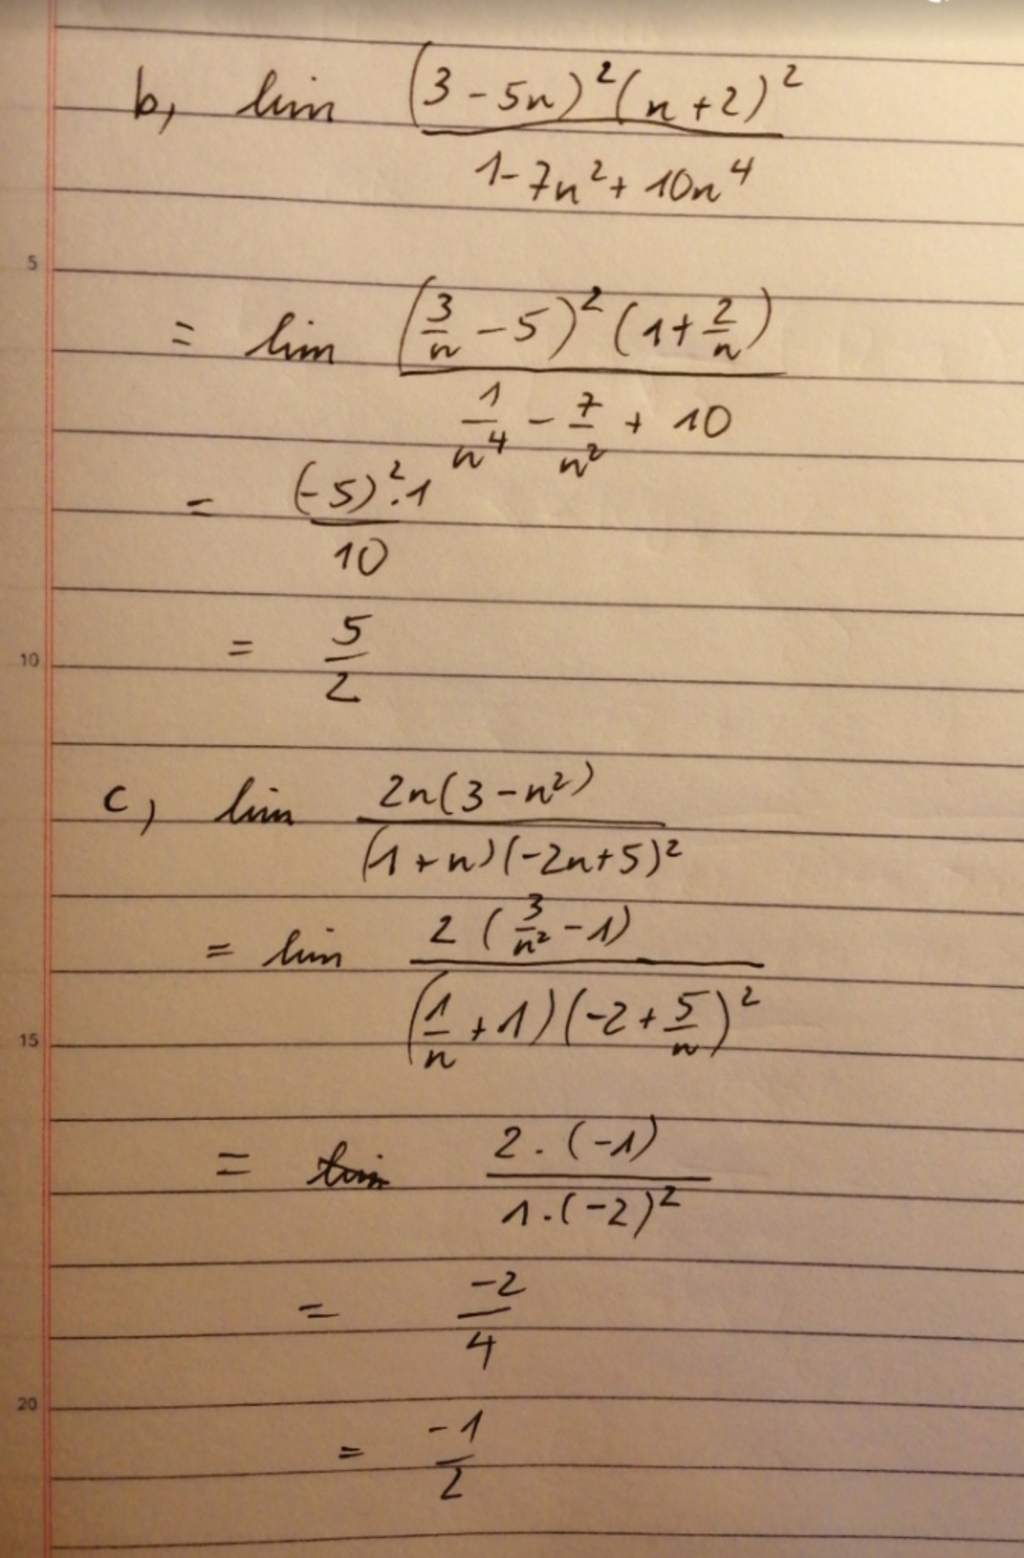 b, lim (3 - 5n)²(n + 2)² / 1 - 7n² + 10n⁴
5
= lim (3/n - 5)² (1 + 2/n) / 1/n⁴ - 7/n² + 10
= (-5)².1 / 10
10
= 5/2
c, lim 2n(3 - n²) / (1 + n)(-2n + 5)²
= lim 2 (3/n² - 1) / (1/n + 1)(-2 + 5/n)²
15
= lim 2.(-1) / 1.(-2)²
= -2/4
20
= -1/2